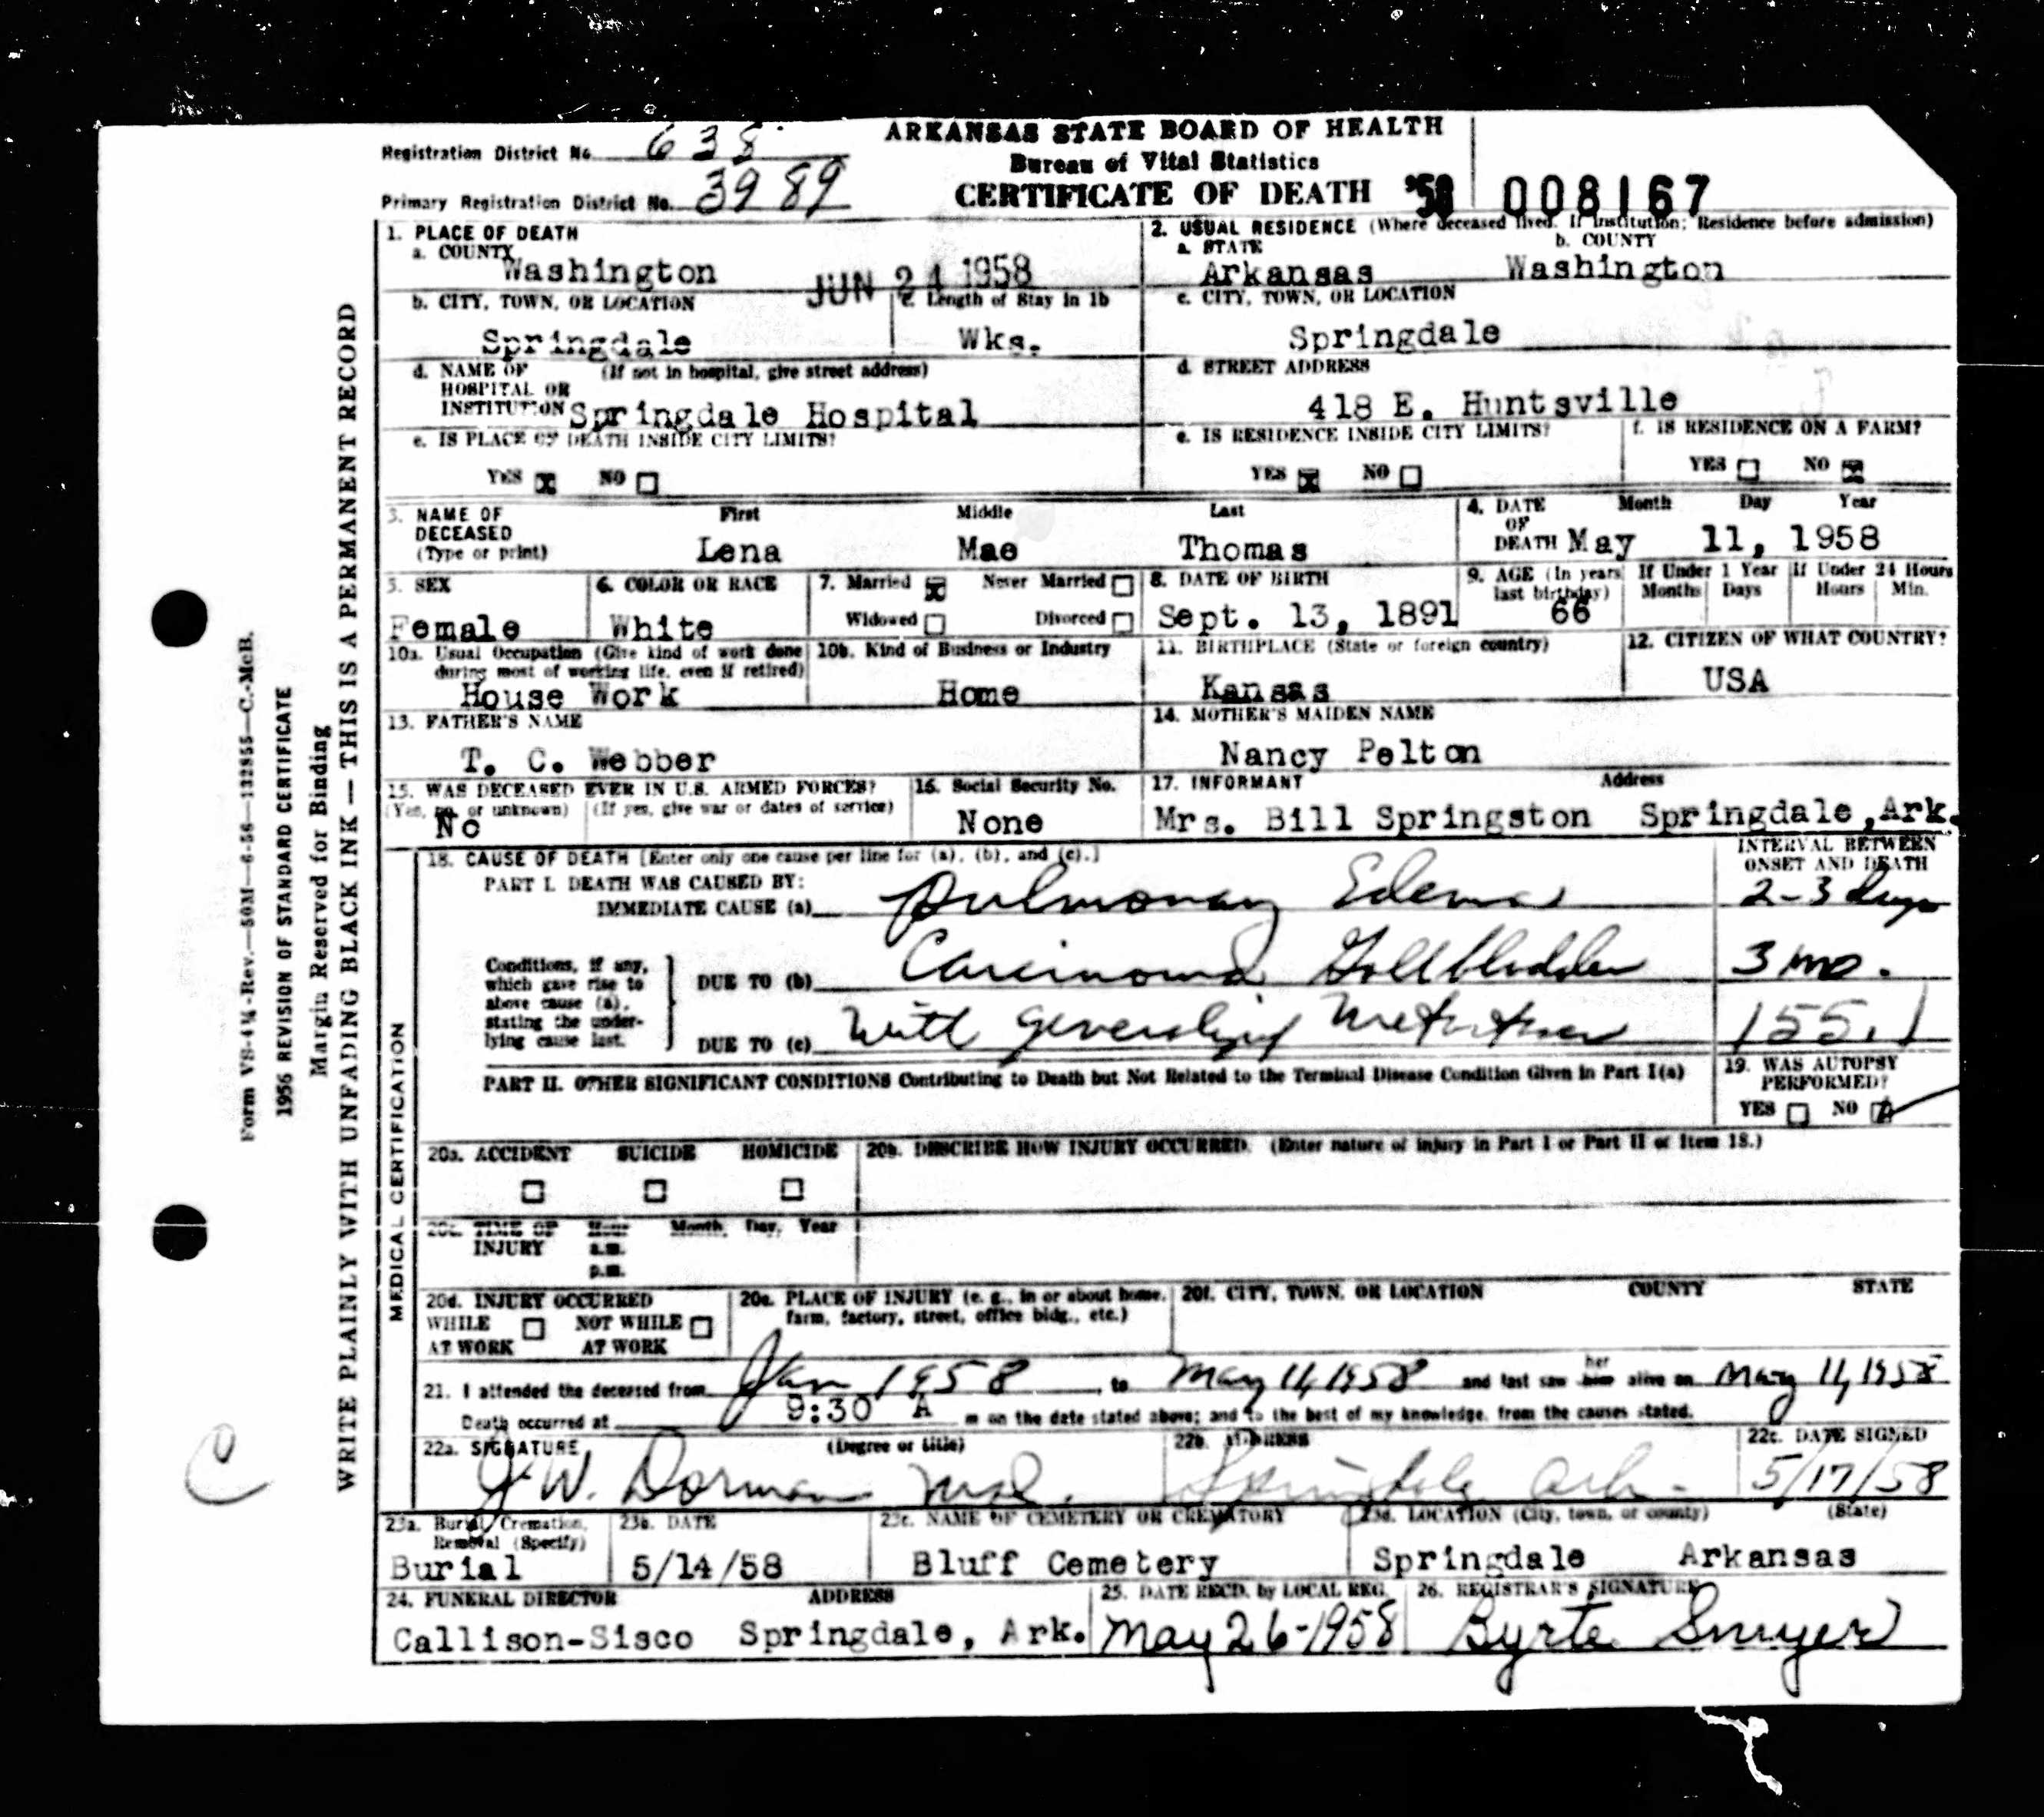 ARKANSAS STATE BOARD OF HEALTH
Bureau of Vital Statistics
CERTIFICATE OF DEATH '58 008167
Registration District No. 638
Primary Registration District No. 3989
1. PLACE OF DEATH
a. COUNTY
Washington JUN 24 1958
2. USUAL RESIDENCE (Where deceased lived. If institution: Residence before admission)
a. STATE b. COUNTY
Arkansas Washington
b. CITY, TOWN, OR LOCATION c. Length of Stay in 1b
Springdale Wks.
c. CITY, TOWN, OR LOCATION
Springdale
d. NAME OF HOSPITAL OR INSTITUTION (If not in hospital, give street address)
Springdale Hospital
d. STREET ADDRESS
418 E. Huntsville
e. IS PLACE OF DEATH INSIDE CITY LIMITS?
YES X NO
e. IS RESIDENCE INSIDE CITY LIMITS? f. IS RESIDENCE ON A FARM?
YES X NO YES NO X
3. NAME OF DECEASED (Type or print) First Middle Last
Lena Mae Thomas
4. DATE OF DEATH Month Day Year
May 11, 1958
5. SEX 6. COLOR OR RACE 7. Married X Never Married Widowed Divorced
Female White
8. DATE OF BIRTH 9. AGE (In years last birthday) If Under 1 Year Months Days If Under 24 Hours Hours Min.
Sept. 13, 1891 66
10a. Usual Occupation (Give kind of work done during most of working life, even if retired) 10b. Kind of Business or Industry
House Work Home
11. BIRTHPLACE (State or foreign country) 12. CITIZEN OF WHAT COUNTRY?
Kansas USA
13. FATHER'S NAME 14. MOTHER'S MAIDEN NAME
T. C. Webber Nancy Pelton
15. WAS DECEASED EVER IN U.S. ARMED FORCES? 16. Social Security No. 17. INFORMANT Address
(Yes, no, or unknown) (If yes, give war or dates of service)
No None Mrs. Bill Springston Springdale, Ark.
18. CAUSE OF DEATH [Enter only one cause per line for (a), (b), and (c).] INTERVAL BETWEEN ONSET AND DEATH
PART I. DEATH WAS CAUSED BY:
IMMEDIATE CAUSE (a) Pulmonary Edema 2-3 days
Conditions, if any, which gave rise to above cause (a), stating the underlying cause last.
DUE TO (b) Carcinoma Gallbladder 3 mo.
DUE TO (c) With generalized Metastases 155.1
PART II. OTHER SIGNIFICANT CONDITIONS Contributing to Death but Not Related to the Terminal Disease Condition Given in Part I(a)
19. WAS AUTOPSY PERFORMED?
YES NO
20a. ACCIDENT SUICIDE HOMICIDE 20b. DESCRIBE HOW INJURY OCCURRED. (Enter nature of injury in Part I or Part II of Item 18.)
20c. TIME OF INJURY Hour a.m. p.m. Month, Day, Year
20d. INJURY OCCURRED WHILE AT WORK NOT WHILE AT WORK
20e. PLACE OF INJURY (e. g., in or about home, farm, factory, street, office bldg., etc.)
20f. CITY, TOWN, OR LOCATION COUNTY STATE
21. I attended the deceased from Jan 1958, to May 11, 1958 and last saw her him alive on May 11, 1958
Death occurred at 9:30 A m on the date stated above; and to the best of my knowledge, from the causes stated.
22a. SIGNATURE (Degree or title) 22b. ADDRESS 22c. DATE SIGNED
J W. Dorman M.D. Springdale Ark. 5/17/58
23a. Burial, Cremation, Removal (Specify) 23b. DATE 23c. NAME OF CEMETERY OR CREMATORY 23d. LOCATION (City, town, or county) (State)
Burial 5/14/58 Bluff Cemetery Springdale Arkansas
24. FUNERAL DIRECTOR ADDRESS 25. DATE RECD. by LOCAL REG. 26. REGISTRAR'S SIGNATURE
Callison-Sisco Springdale, Ark. May 26-1958 Byrte Smyer
MEDICAL CERTIFICATION
WRITE PLAINLY WITH UNFADING BLACK INK — THIS IS A PERMANENT RECORD
Margin Reserved for Binding
1956 REVISION OF STANDARD CERTIFICATE
Form VS-4¼-Rev.—50M—6-56—132855—C.-McB.
C